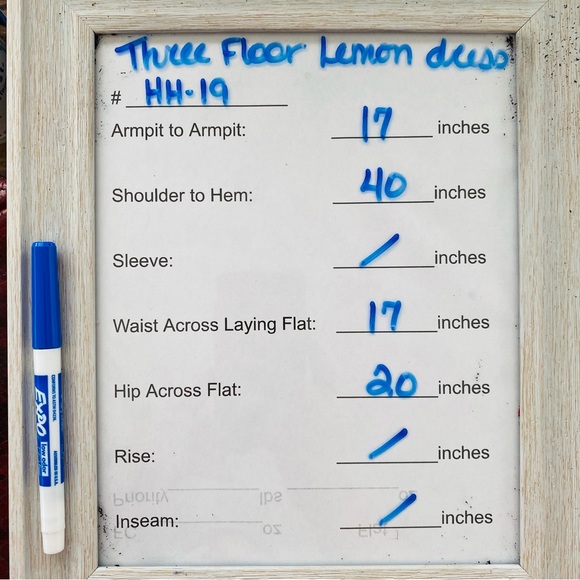 Three Floor Lemon dress
# HH-19
Armpit to Armpit: 17 inches
Shoulder to Hem: 40 inches
Sleeve: / inches
Waist Across Laying Flat: 17 inches
Hip Across Flat: 20 inches
Rise: / inches
Priority lbs oz
Inseam: / inches
FC oz Flat
EXPO
low odor